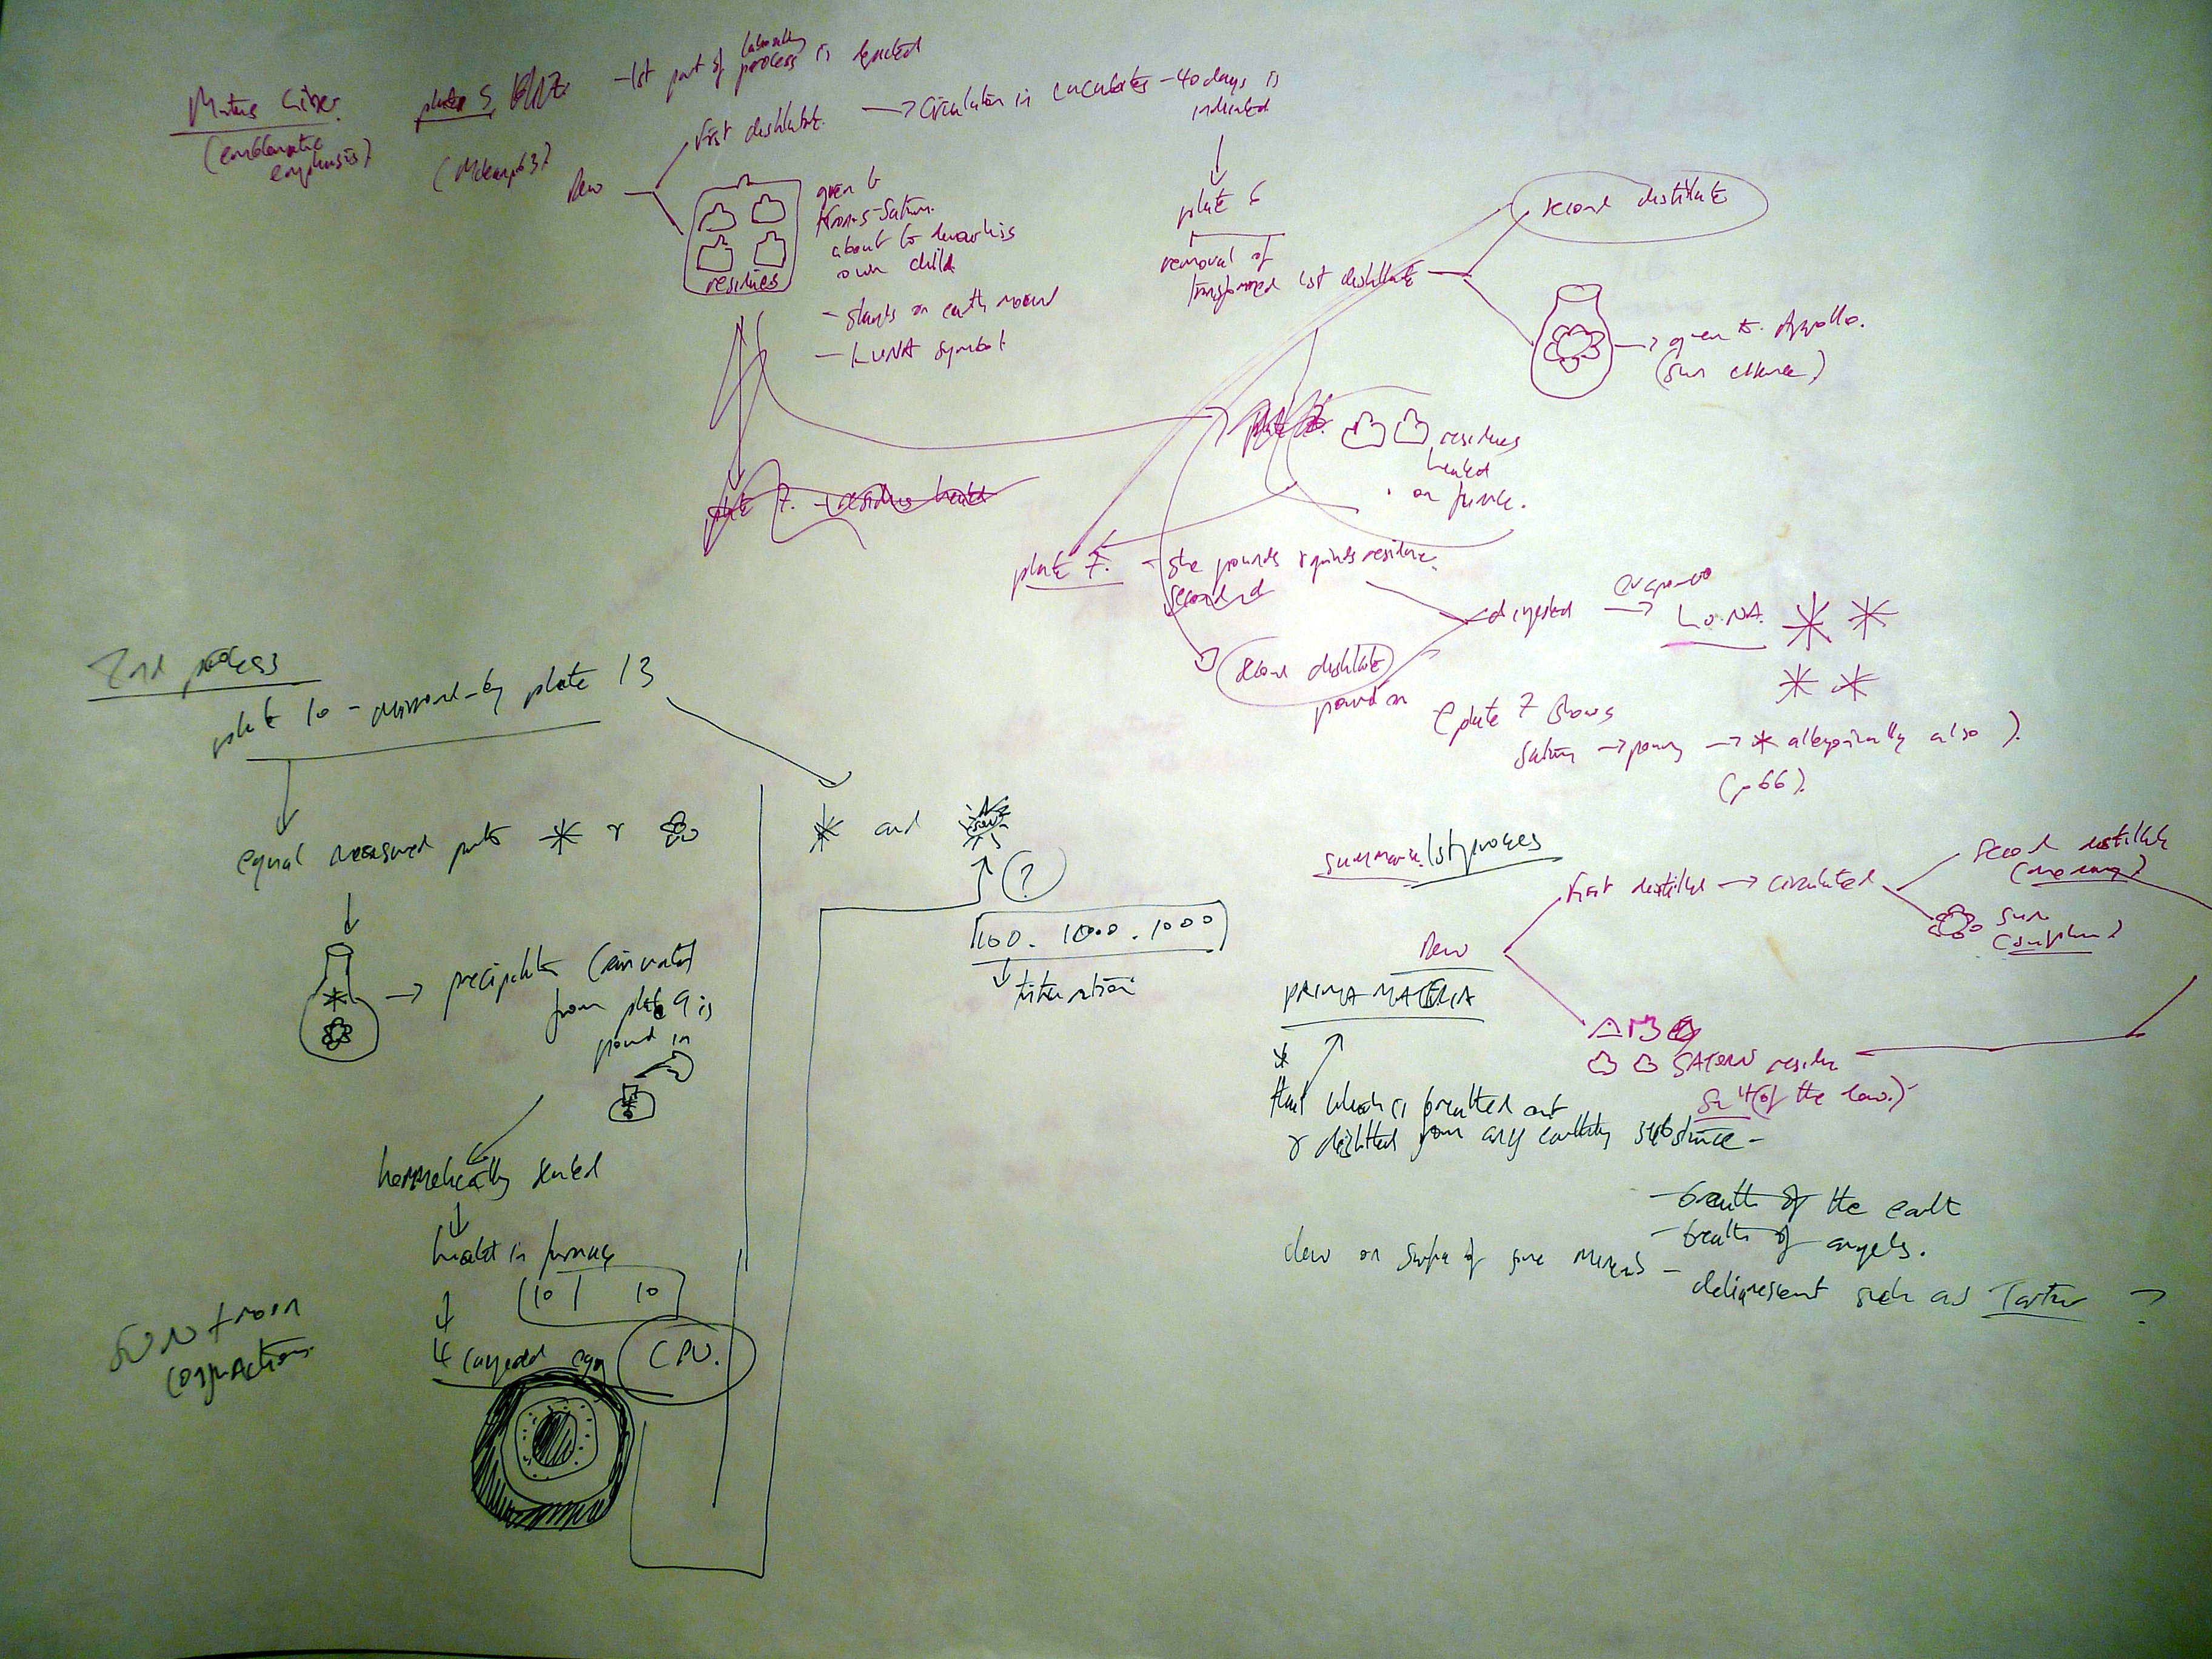 Mutus Liber.
(emblematic
emphasis)
plate 5,
(Mclean p63)
-1st part of laboratory process is
Dew
first distillate. → circulation in - 40 days is
indicated
residues
given to
Kronos-Saturn.
about to devour his
own child
- stands on earth mound
- LUNA symbol
plate 6
removal of
transformed 1st distillate
second distillate
→ given to Apollo.
(sun essence)
plate 7. - residues heated
residues
heated
on furnace.
plate 7. - She pounds & grinds residue.
second
second distillate
poured on
digested → LUNA.
(plate 7 shows
Saturn → → * allegorically also).
(p66).
2nd process
plate 10 - mirrored by plate 13
equal measured parts * &
→ precipitate
from plate 9 is
poured in
hermetically sealed
heated in furnace
10 | 10
4 layered egg
SUN from
conjunction
* and
?
100. 1000. 1000
summarise 1st process
Dew
first distilled → circulated
second distillate
(mercury)
sun
(sulphur)
SATURN residue
Salt (of the
PRIMA MATERIA
*
that which is breathed out
& distilled from any earthly substance -
- breath of the earth
- breath of angels.
dew on surface of some minerals - deliquescent such as Tartar ?